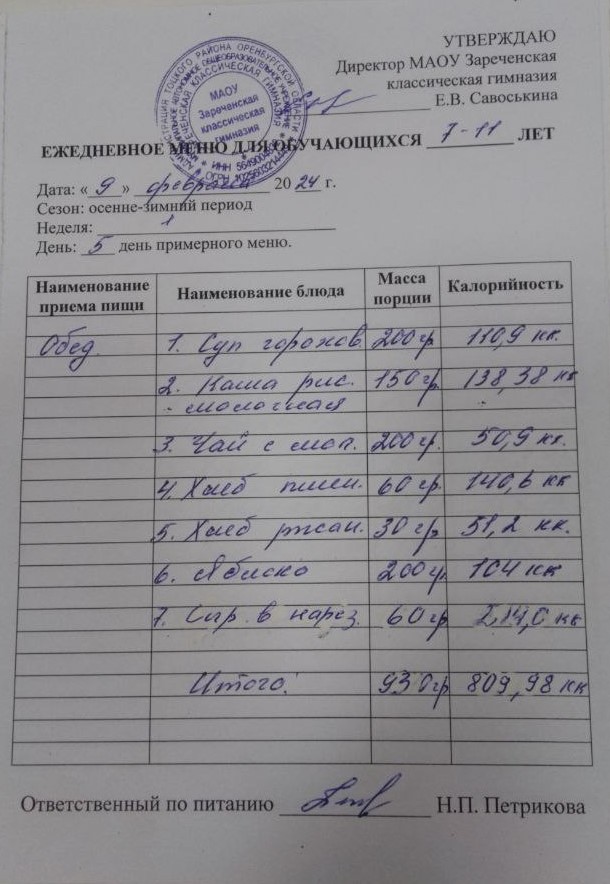 УТВЕРЖДАЮ
Директор МАОУ Зареченская
классическая гимназия
Е.В. Савоськина
МАОУ
Зареченская
классическая
гимназия
ЕЖЕДНЕВНОЕ МЕНЮ ДЛЯ ОБУЧАЮЩИХСЯ 7-11 ЛЕТ
Дата: «9» февраля 2024 г.
Сезон: осенне-зимний период
Неделя: 1
День: 5 день примерного меню.
Наименование приема пищи Наименование блюда Масса порции Калорийность
Обед 1. Суп горохов. 200 гр 110,9 кк.
2. Каша рис. 150 гр. 138,38 кк
молочная
3. Чай с мол. 200 гр. 50,9 кк.
4. Хлеб пшен. 60 гр. 140,6 кк
5. Хлеб ржан. 30 гр 51,2 кк.
6. Яблоко 200 гр. 104 кк
7. Сыр в нарез. 60 гр 214,0 кк
Итого: 930 гр 809,98 кк
Ответственный по питанию Н.П. Петрикова